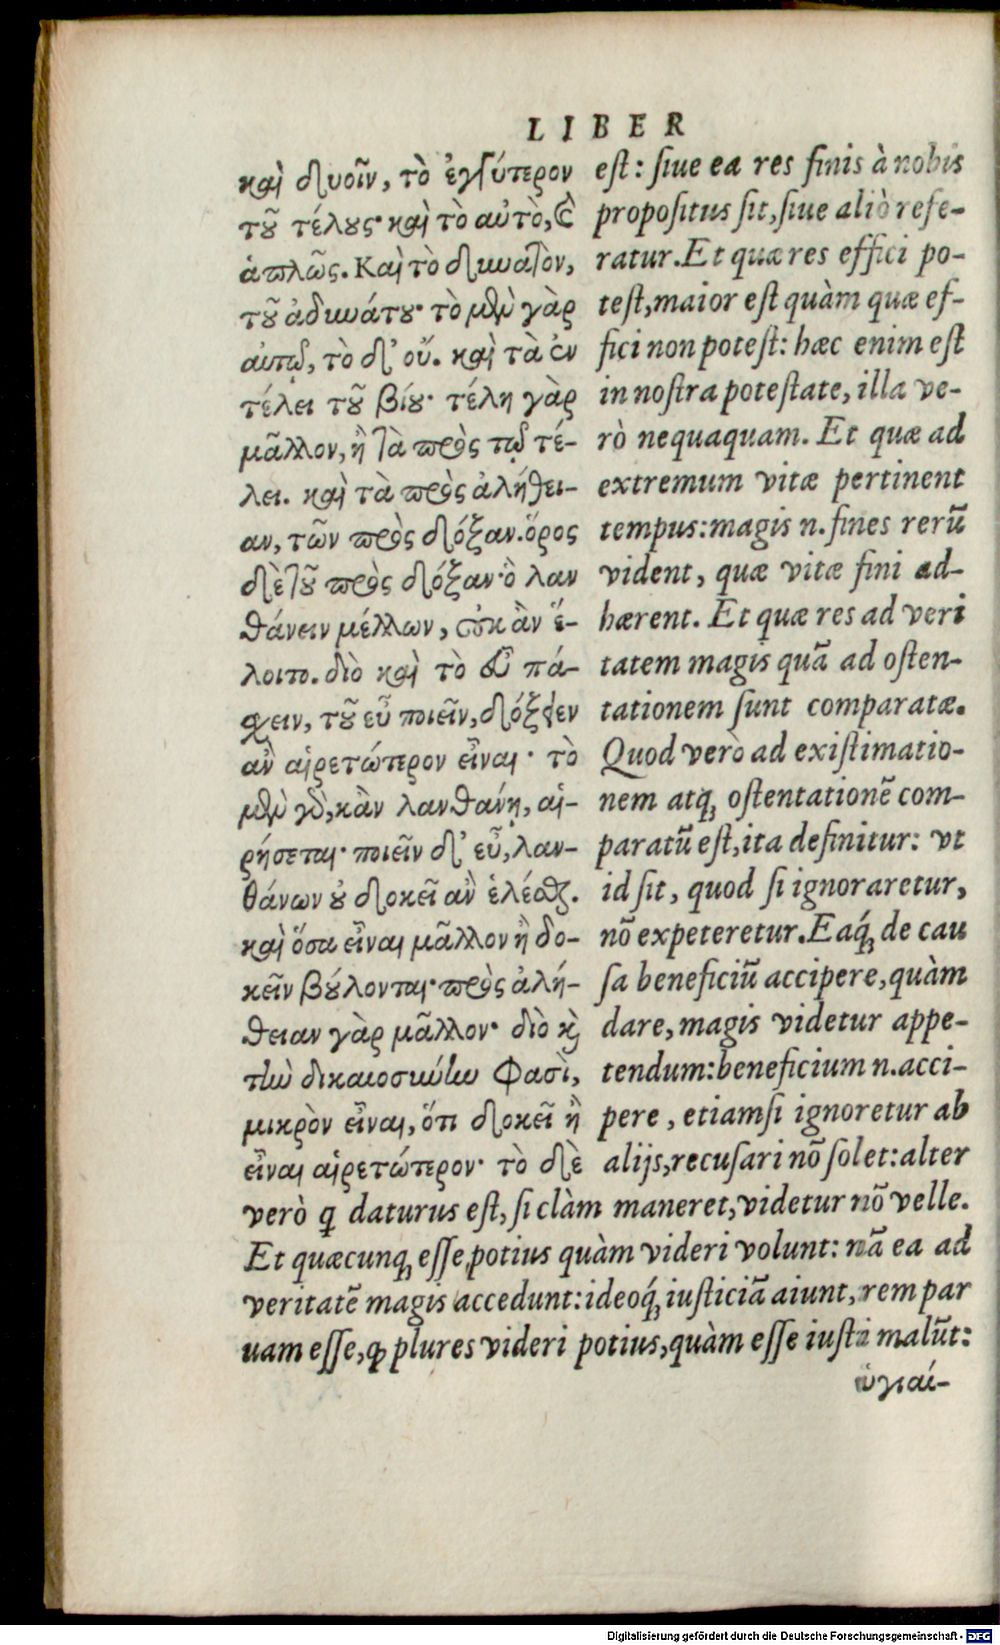 LIBER
καὶ δυοῖν, τὸ ἐγγύτερον
τοῦ τέλους· καὶ τὸ αὐτὸ, καὶ
ἁπλῶς. Καὶ τὸ δυνατὸν,
τοῦ ἀδυνάτου· τὸ μὲν γὰρ
αὐτῷ, τὸ δ' οὔ. καὶ τὰ ἐν
τέλει τοῦ βίου· τέλη γὰρ
μᾶλλον, ἢ τὰ πρὸς τῷ τέ-
λει. καὶ τὰ πρὸς ἀλήθει-
αν, τῶν πρὸς δόξαν. ὅρος
δὲ τοῦ πρὸς δόξαν· ὃ λαν
θάνειν μέλλων, οὐκ ἂν ἕ-
λοιτο. διὸ καὶ τὸ εὖ πά-
σχειν, τοῦ εὖ ποιεῖν, δόξειεν
ἂν αἱρετώτερον εἶναι· τὸ
μὲν γὰρ, κἂν λανθάνῃ, αἱ-
ρήσεται· ποιεῖν δ' εὖ, λαν-
θάνων οὐ δοκεῖ ἂν ἑλέσθαι.
καὶ ὅσα εἶναι μᾶλλον ἢ δο-
κεῖν βούλονται· πρὸς ἀλή-
θειαν γὰρ μᾶλλον· διὸ καὶ
τὴν δικαιοσύνην φασὶ,
μικρὸν εἶναι, ὅτι δοκεῖ ἢ
εἶναι αἱρετώτερον· τὸ δὲ
est: siue ea res finis à nobis
propositus sit, siue aliò refe-
ratur. Et quæ res effici po-
test, maior est quàm quæ ef-
fici non potest: hæc enim est
in nostra potestate, illa ve-
rò nequaquam. Et quæ ad
extremum vitæ pertinent
tempus: magis n. fines rerũ
vident, quæ vitæ fini ad-
hærent. Et quæ res ad veri
tatem magis quã ad osten-
tationem sunt comparatæ.
Quod verò ad existimatio-
nem atq; ostentationẽ com-
paratũ est, ita definitur: vt
id sit, quod si ignoraretur,
nõ expeteretur. Eaq́; de cau
sa beneficiũ accipere, quàm
dare, magis videtur appe-
tendum: beneficium n. acci-
pere, etiamsi ignoretur ab
alijs, recusari nõ solet: alter
verò q daturus est, si clàm maneret, videtur nõ velle.
Et quæcunq; esse potius quàm videri volunt: nã ea ad
veritatẽ magis accedunt: ideoq́; iusticiã aiunt, rem par
uam esse, ꝙ plures videri potius, quàm esse iusti malũt:
ὑγιαί-
Digitalisierung gefördert durch die Deutsche Forschungsgemeinschaft - DFG